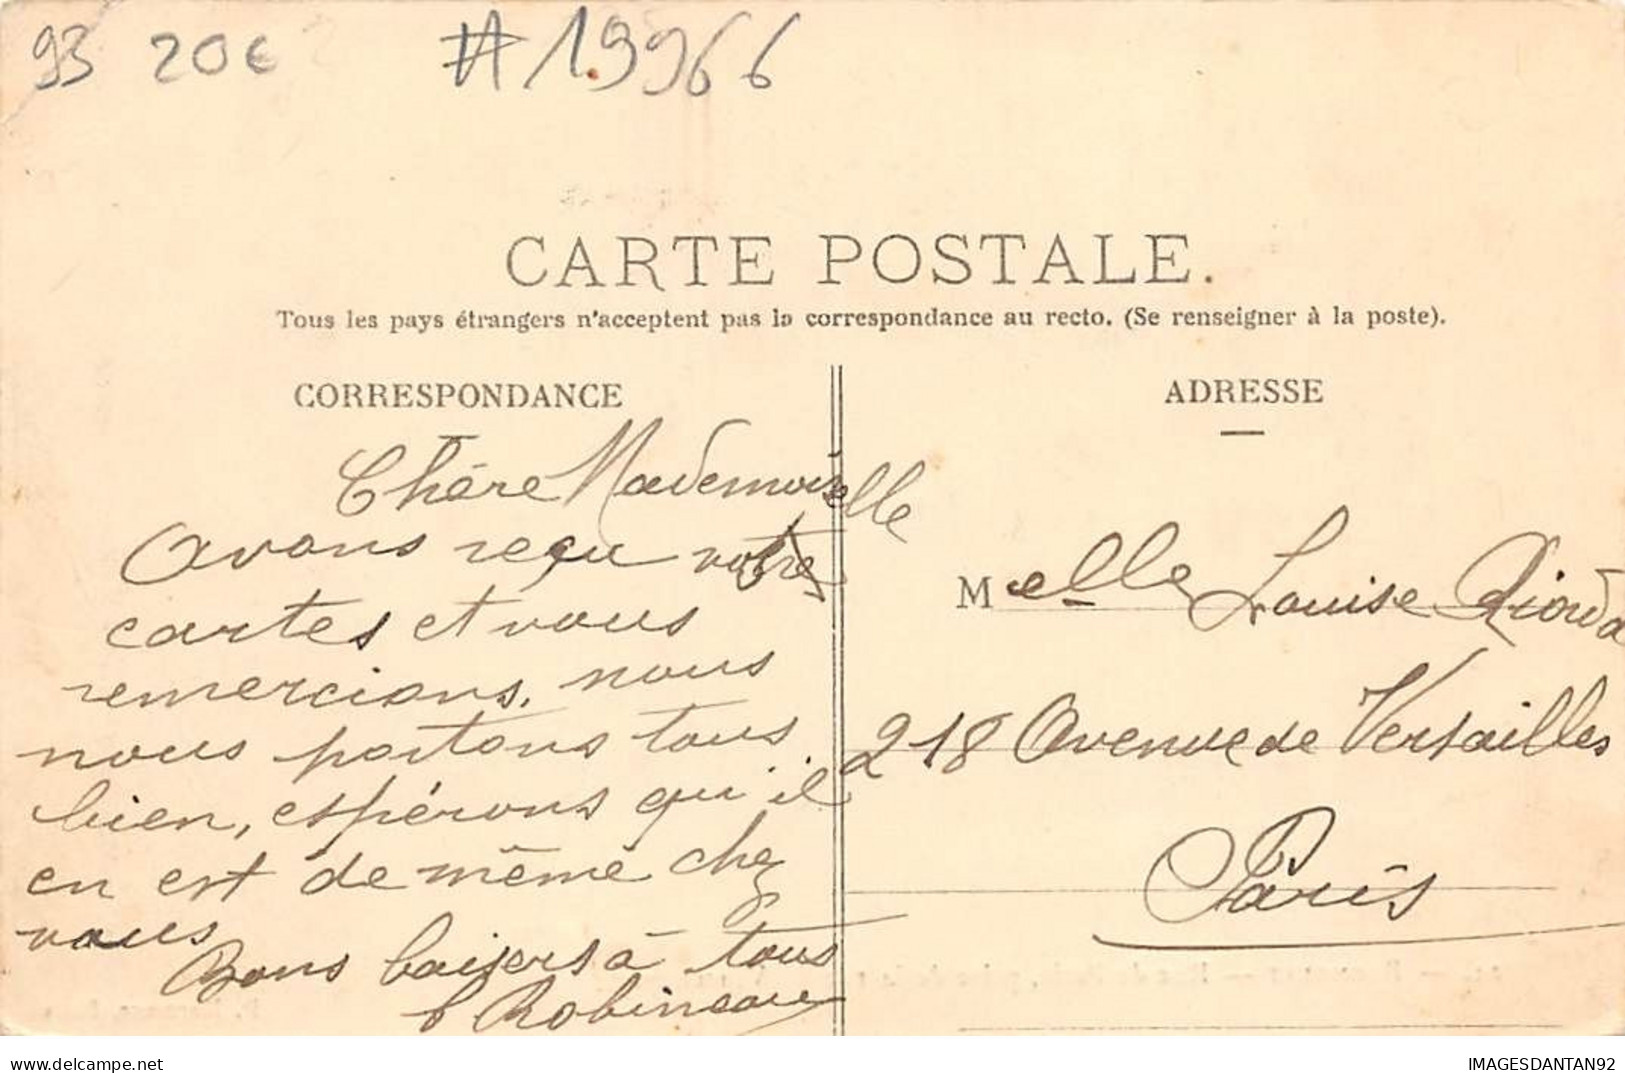 93 20€ #19966
CARTE POSTALE.
Tous les pays étrangers n'acceptent pas la correspondance au recto. (Se renseigner à la poste).
CORRESPONDANCE
Chère Mademoiselle
avons reçu votres
cartes et vous
remercions, nous
nous portons tous
bien, espérons qu'il
en est de même chez
vous
Bons baisers à tous
Robineau
ADRESSE
Melle Louise
218 Avenue de Versailles
Paris
delcampe.net
IMAGESDANTAN92